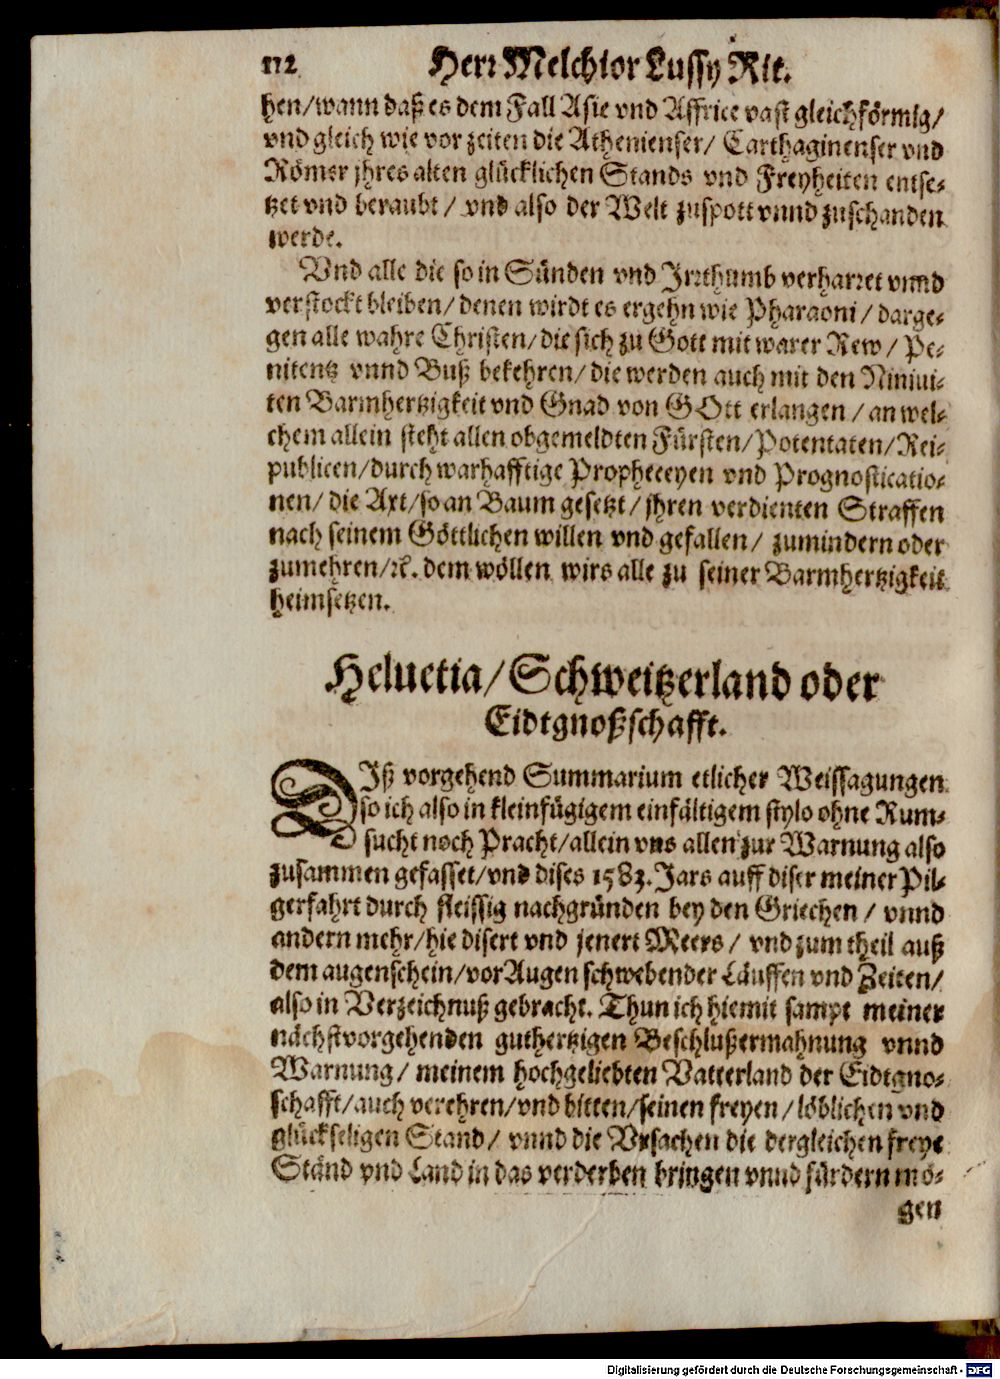 112 Herr Melchior Lussy Rit.
hen/wann daß es dem Fall Asie vnd Affrice vast gleichförmig/
vnd gleich wie vor zeiten die Athenienser/ Carthaginenser vnd
Römer jhres alten glücklichen Stands vnd Freyheiten entse-
tzet vnd beraubt/ vnd also der Welt zuspott vnnd zuschanden
werde.
Vnd alle die so in Sünden vnd Irrthumb verharret vnnd
verstockt bleiben/ denen wirdt es ergehn wie Pharaoni/ darge-
gen alle wahre Christen/ die sich zu Gott mit warer Rew/ Pe-
nitentz vnnd Buß bekehren/ die werden auch mit den Niniui-
ten Barmhertzigkeit vnd Gnad von GOtt erlangen/ an wel-
chem allein steht allen obgemeldten Fürsten/ Potentaten/ Rei-
publicen/ durch warhafftige Propheceyen vnd Prognosticatio-
nen/ die Axt/ so an Baum gesetzt/ jhren verdienten Straffen
nach seinem Göttlichen willen vnd gefallen/ zumindern oder
zumehren/ꝛc. dem wöllen wirs alle zu seiner Barmhertzigkeit
heimsetzen.
Heluetia/ Schweitzerland oder
Eidtgnoßschafft.
DIß vorgehend Summarium etlicher Weissagungen
so ich also in kleinfügigem einfältigem stylo ohne Rum-
sucht noch Pracht/ allein vns allen zur Warnung also
zusammen gefasset/ vnd dises 1583. Jars auff diser meiner Pil-
gerfahrt durch fleissig nachgründen bey den Griechen/ vnnd
andern mehr/ hie disert vnd jenert Meers/ vnd zum theil auß
dem augenschein/ vor Augen schwebender Läuffen vnd Zeiten/
also in Verzeichnuß gebracht. Thun ich hiemit sampt meiner
nächstvorgehenden guthertzigen Beschlußermahnung vnnd
Warnung/ meinem hochgeliebten Vatterland der Eidtgno-
schafft/ auch verehren/ vnd bitten/ seinen freyen/ löblichen vnd
glückseligen Stand/ vnnd die Vrsachen die dergleichen freye
Ständ vnd Land in das verderben bringen vnnd fürdern mö-
gen
Digitalisierung gefördert durch die Deutsche Forschungsgemeinschaft - DFG